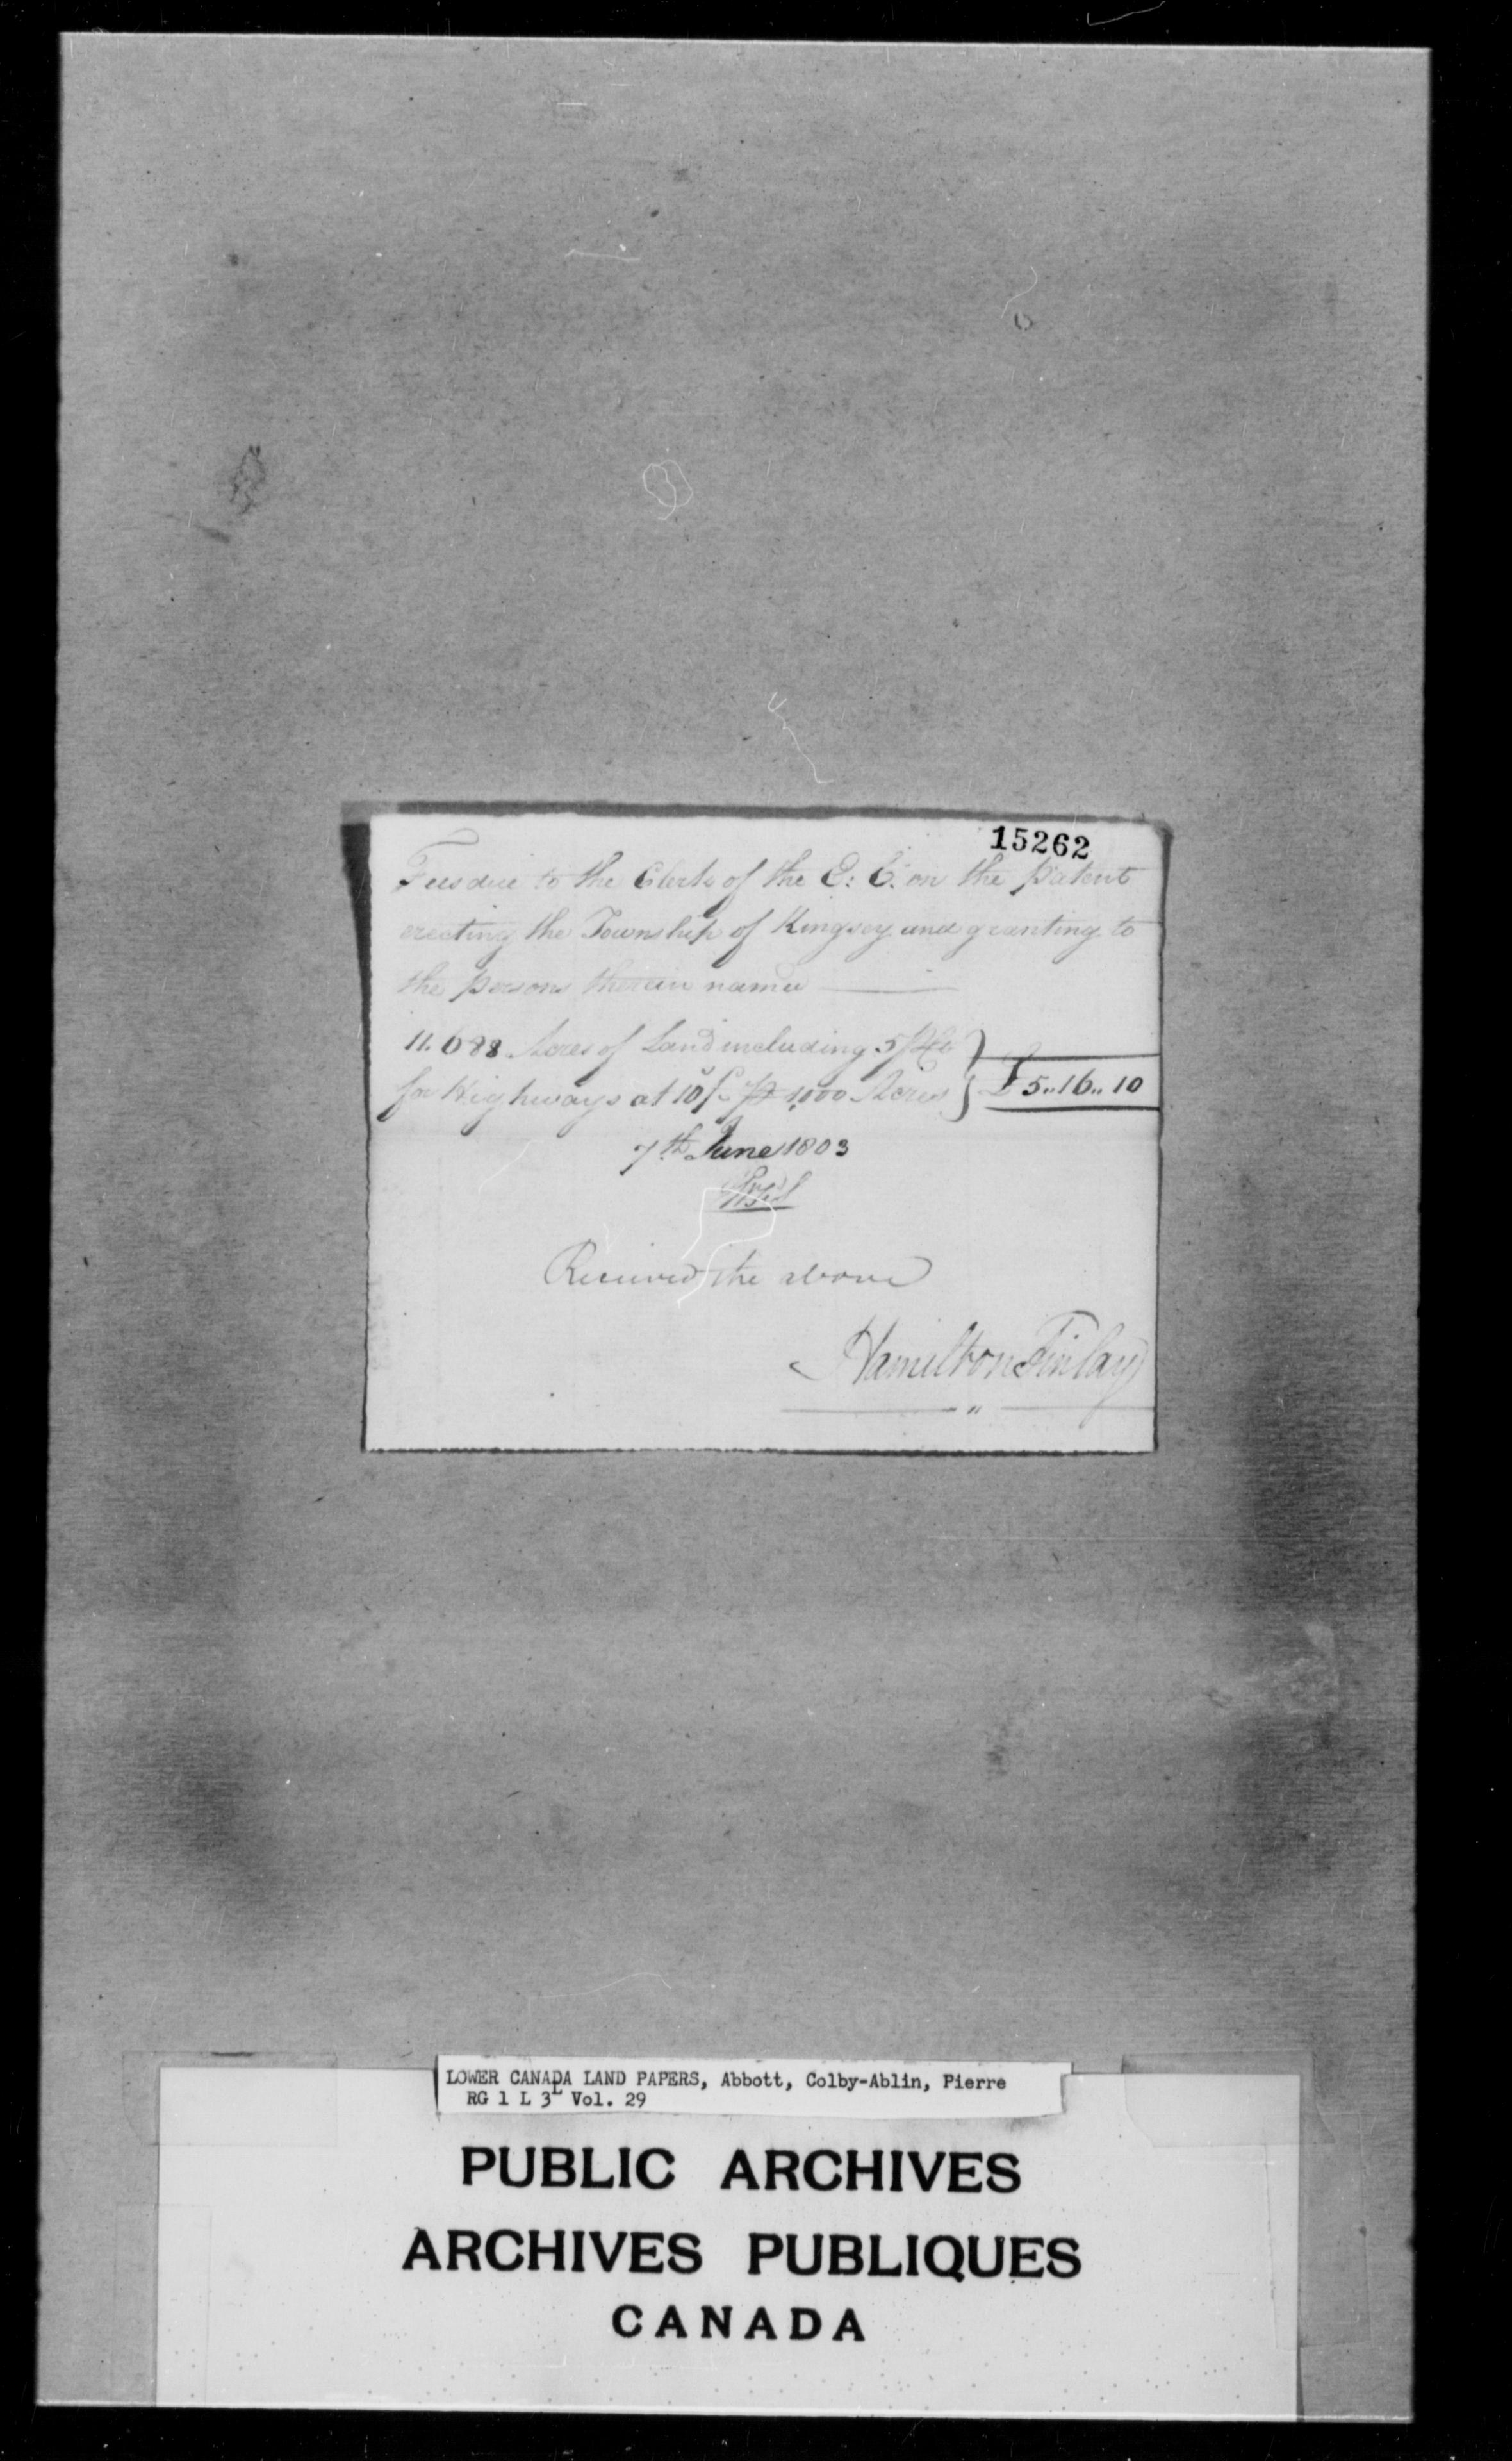 15262
Fees due to the Clerk of the E: C. on the Patent
erecting the Township of Kingsey and granting to
the persons therein named
11.688 Acres of Land including 5 P Ct
for Highways at 10/ P 1,000 Acres } £5..16..10
7th June 1803
Received the above
Hamilton Finlay
LOWER CANADA LAND PAPERS, Abbott, Colby-Ablin, Pierre
RG 1 L 3L Vol. 29
PUBLIC ARCHIVES
ARCHIVES PUBLIQUES
CANADA